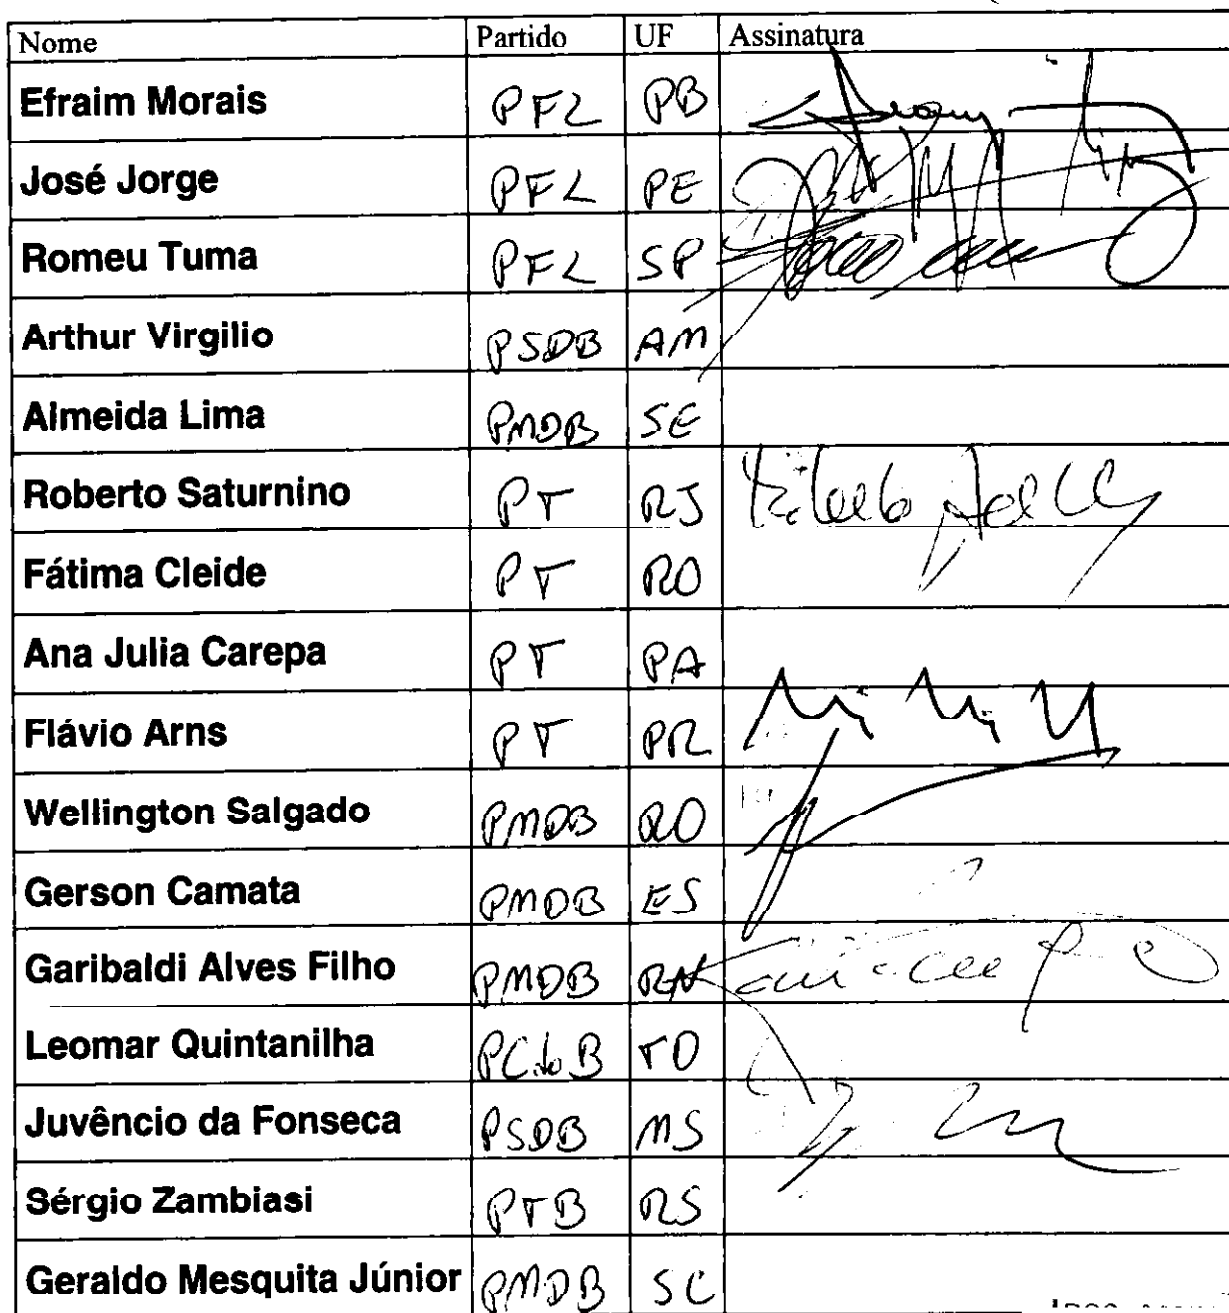 Nome Partido UF Assinatura
Efraim Morais PFL PB
José Jorge PFL PE
Romeu Tuma PFL SP
Arthur Virgilio PSDB AM
Almeida Lima PMDB SE
Roberto Saturnino PT RJ
Fátima Cleide PT RO
Ana Julia Carepa PT PA
Flávio Arns PT PR
Wellington Salgado PMDB RO
Gerson Camata PMDB ES
Garibaldi Alves Filho PMDB RN
Leomar Quintanilha PCdoB TO
Juvêncio da Fonseca PSDB MS
Sérgio Zambiasi PTB RS
Geraldo Mesquita Júnior PMDB SC